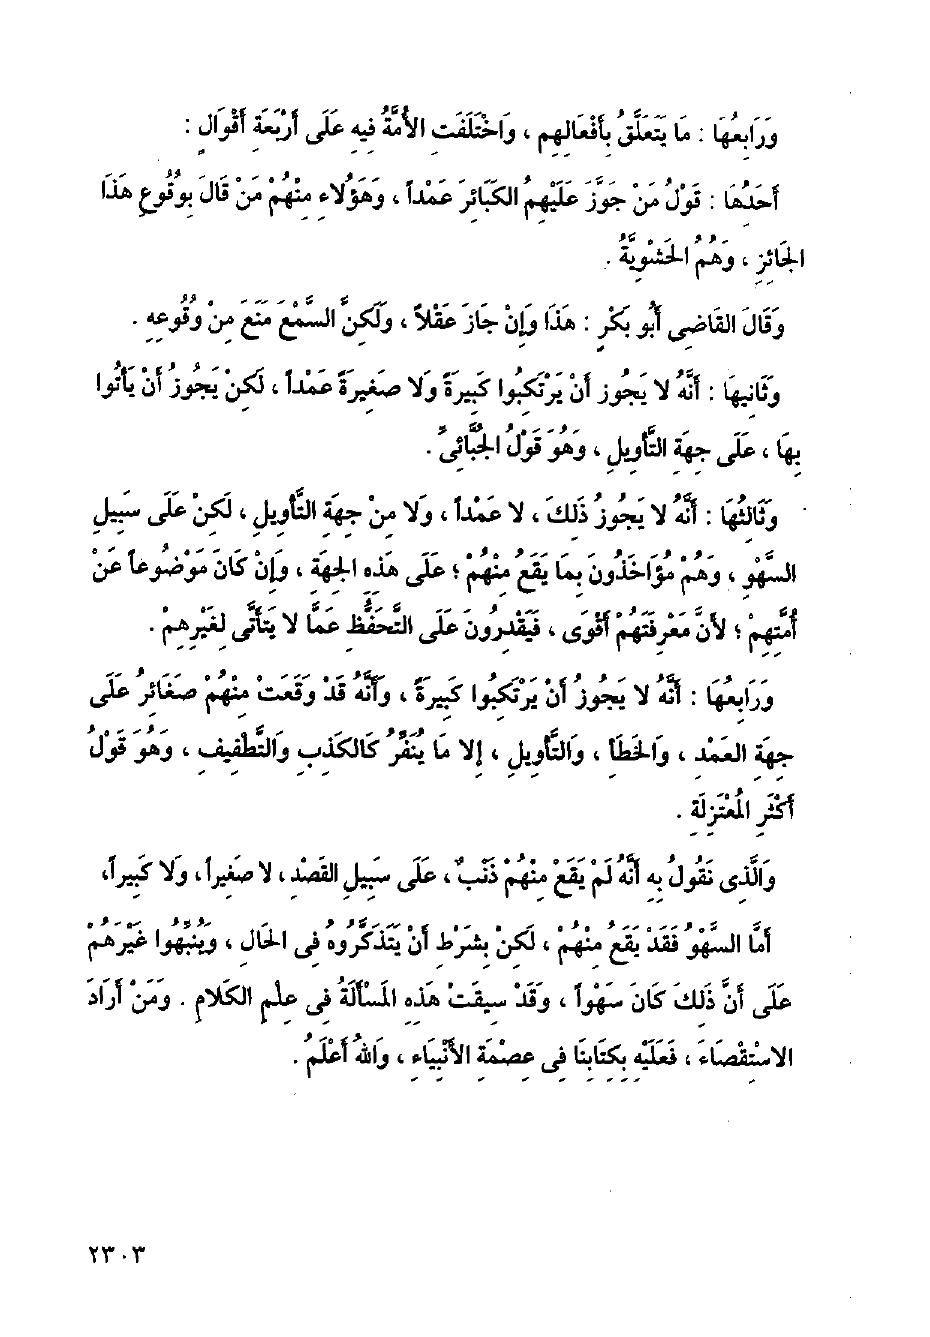 وَرَابِعُهَا : مَا يَتَعَلَّقُ بِأَفْعَالِهِمْ ، وَاخْتَلَفَتِ الأُمَّةُ فِيهِ عَلَى أَرْبَعَةِ أَقْوَالٍ :
أَحَدُهَا : قَوْلُ مَنْ جَوَّزَ عَلَيْهِمُ الكَبَائِرَ عَمْداً ، وَهَؤُلاءِ مِنْهُمْ مَنْ قَالَ بِوُقُوعِ هَذَا
الجَائِزِ ، وَهُمُ الحَشْوِيَّةُ .
وَقَالَ القَاضِى أَبُو بَكْرٍ : هَذَا وَإِنْ جَازَ عَقْلاً ، وَلَكِنَّ السَّمْعَ مَنَعَ مِنْ وُقُوعِهِ .
وَثَانِيهَا : أَنَّهُ لا يَجُوز أَنْ يَرْتَكِبُوا كَبِيرَةً وَلا صَغِيرَةً عَمْداً ، لَكِنْ يَجُوزُ أَنْ يَأْتُوا
بِهَا ، عَلَى جِهَةِ التَّأْوِيلِ ، وَهُوَ قَوْلُ الجُبَّائِىِّ .
وَثَالِثُهَا : أَنَّهُ لا يَجُوزُ ذَلِكَ ، لا عَمْداً ، وَلا مِنْ جِهَةِ التَّأْوِيلِ ، لَكِنْ عَلَى سَبِيلِ
السَّهْوِ ، وَهُمْ مؤَاخَذُونَ بِمَا يَقَعُ مِنْهُمْ ؛ عَلَى هَذِهِ الجِهَةِ ، وَإِنْ كَانَ مَوْضُوعاً عَنْ
أُمَّتِهِمْ ؛ لأَنَّ مَعْرِفَتَهُمْ أَقْوَى ، فَيَقْدِرُونَ عَلَى التَّحَفُّظِ عَمَّا لا يَتَأَتَّى لِغَيْرِهِمْ .
وَرَابِعُهَا : أَنَّهُ لا يَجُوزُ أَنْ يَرْتَكِبُوا كَبِيرَةً ، وَأَنَّهُ قَدْ وَقَعَتْ مِنْهُمْ صَغَائِرُ عَلَى
جِهَةِ العَمْدِ ، وَالخَطَأِ ، وَالتَّأْوِيلِ ، إِلا مَا يُنَفِّرُ كَالكَذِبِ وَالتَّطْفِيفِ ، وَهُوَ قَوْلُ
أَكْثَرِ المُعْتَزِلَةِ .
وَالَّذِى نَقُولُ بِهِ أَنَّهُ لَمْ يَقَعْ مِنْهُمْ ذَنْبٌ ، عَلَى سَبِيلِ القَصْدِ ، لا صَغِيراً ، وَلا كَبِيراً،
أَمَّا السَّهْوُ فَقَدْ يَقَعُ مِنْهُمْ ، لَكِنْ بِشَرْطِ أَنْ يَتَذَكَّرُوهُ فِى الحَالِ ، وَيُنَبِّهُوا غَيْرَهُمْ
عَلَى أَنَّ ذَلِكَ كَانَ سَهْواً ، وَقَدْ سِيقَتْ هَذِهِ المَسْأَلَةُ فِى عِلْمِ الكَلامِ . وَمَنْ أَرَادَ
الاسْتِقْصَاءَ ، فَعَلَيْهِ بِكِتَابِنَا فِى عِصْمَةِ الأَنْبِيَاءِ ، وَاللهُ أَعْلَمُ .
٢٣٠٣